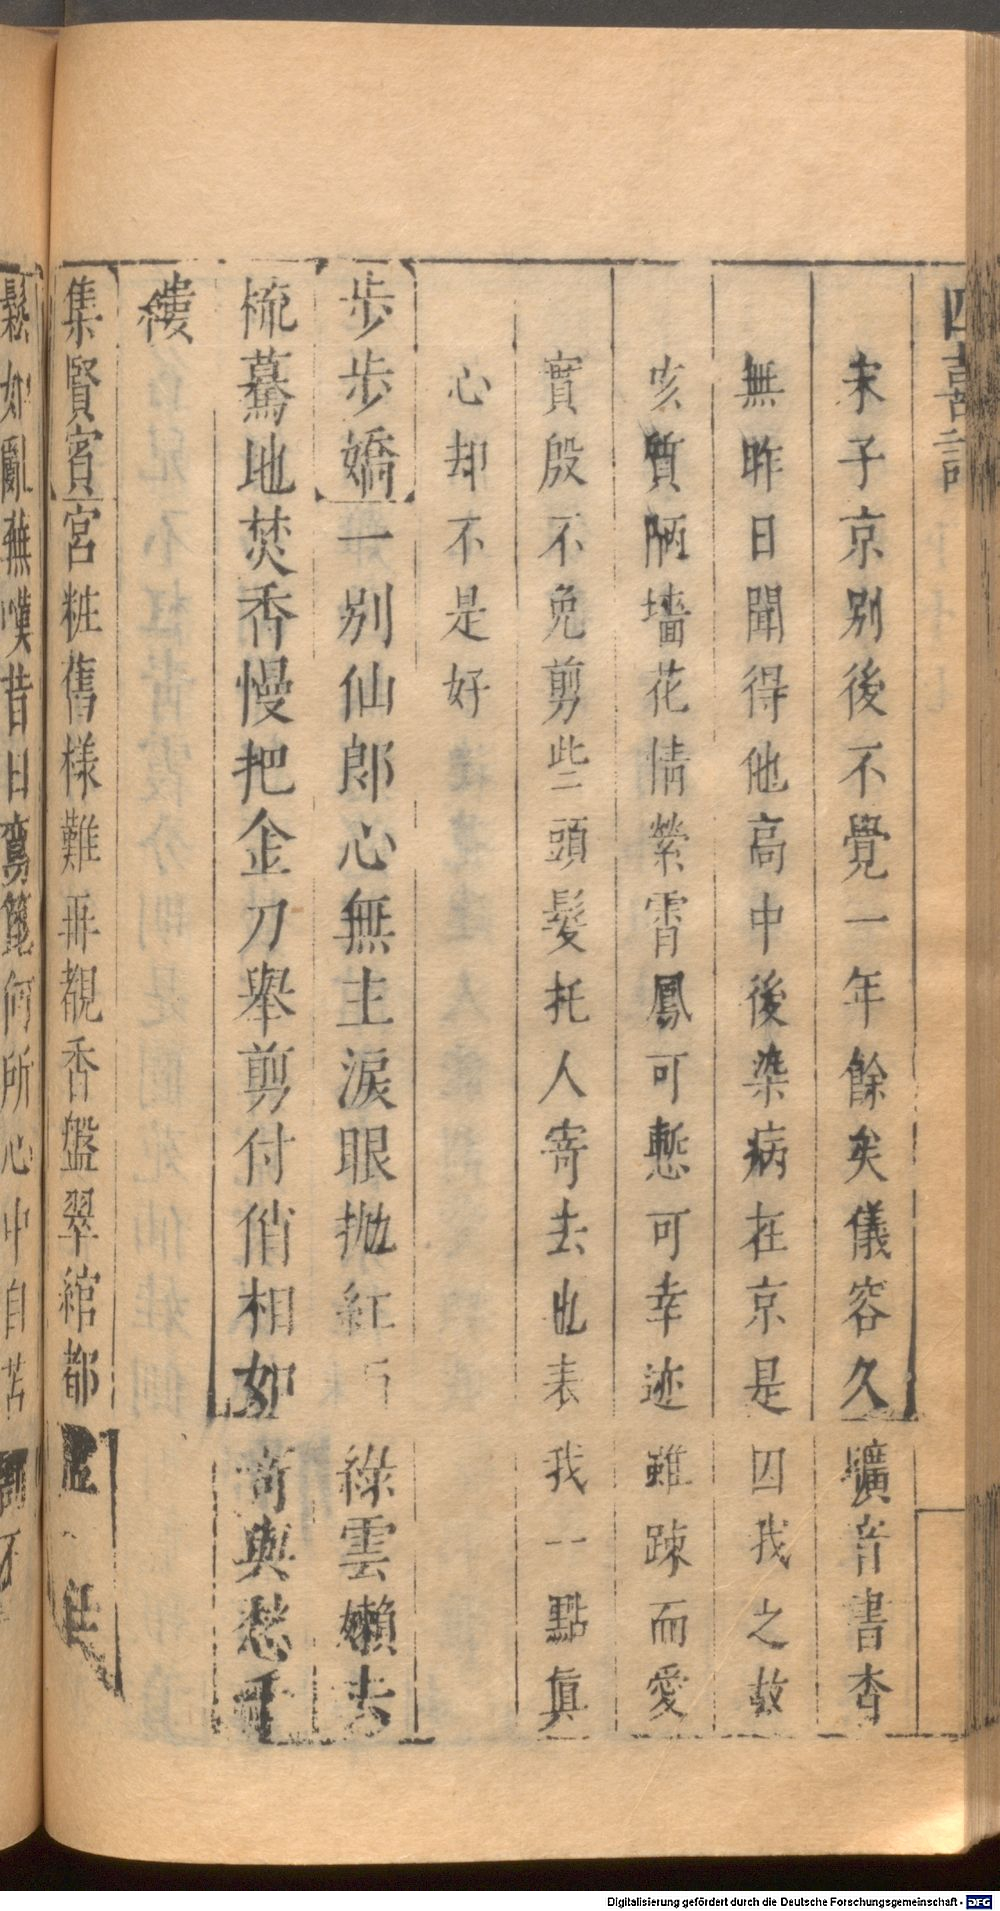 四喜記
宋子京別後不覺一年餘矣儀容久曠音書杳
無昨日聞得他高中後染病在京是因我之故
質陋墻花情縈霄鳳可慙可幸迹雖踈而愛
實殷不免剪些頭髮托人寄去也表我一點眞
心却不是好
步步嬌一別仙郎心無主淚眼拋紅綠雲嬾去
梳驀地焚香慢把金刀舉剪付俏相如寄與愁千
縷
集賢賓宮粧舊樣難再覩香盤翠綰都
鬆如亂蕪嘆昔日鸞篦何所心中自苦
Digitalisierung gefördert durch die Deutsche Forschungsgemeinschaft - DFG